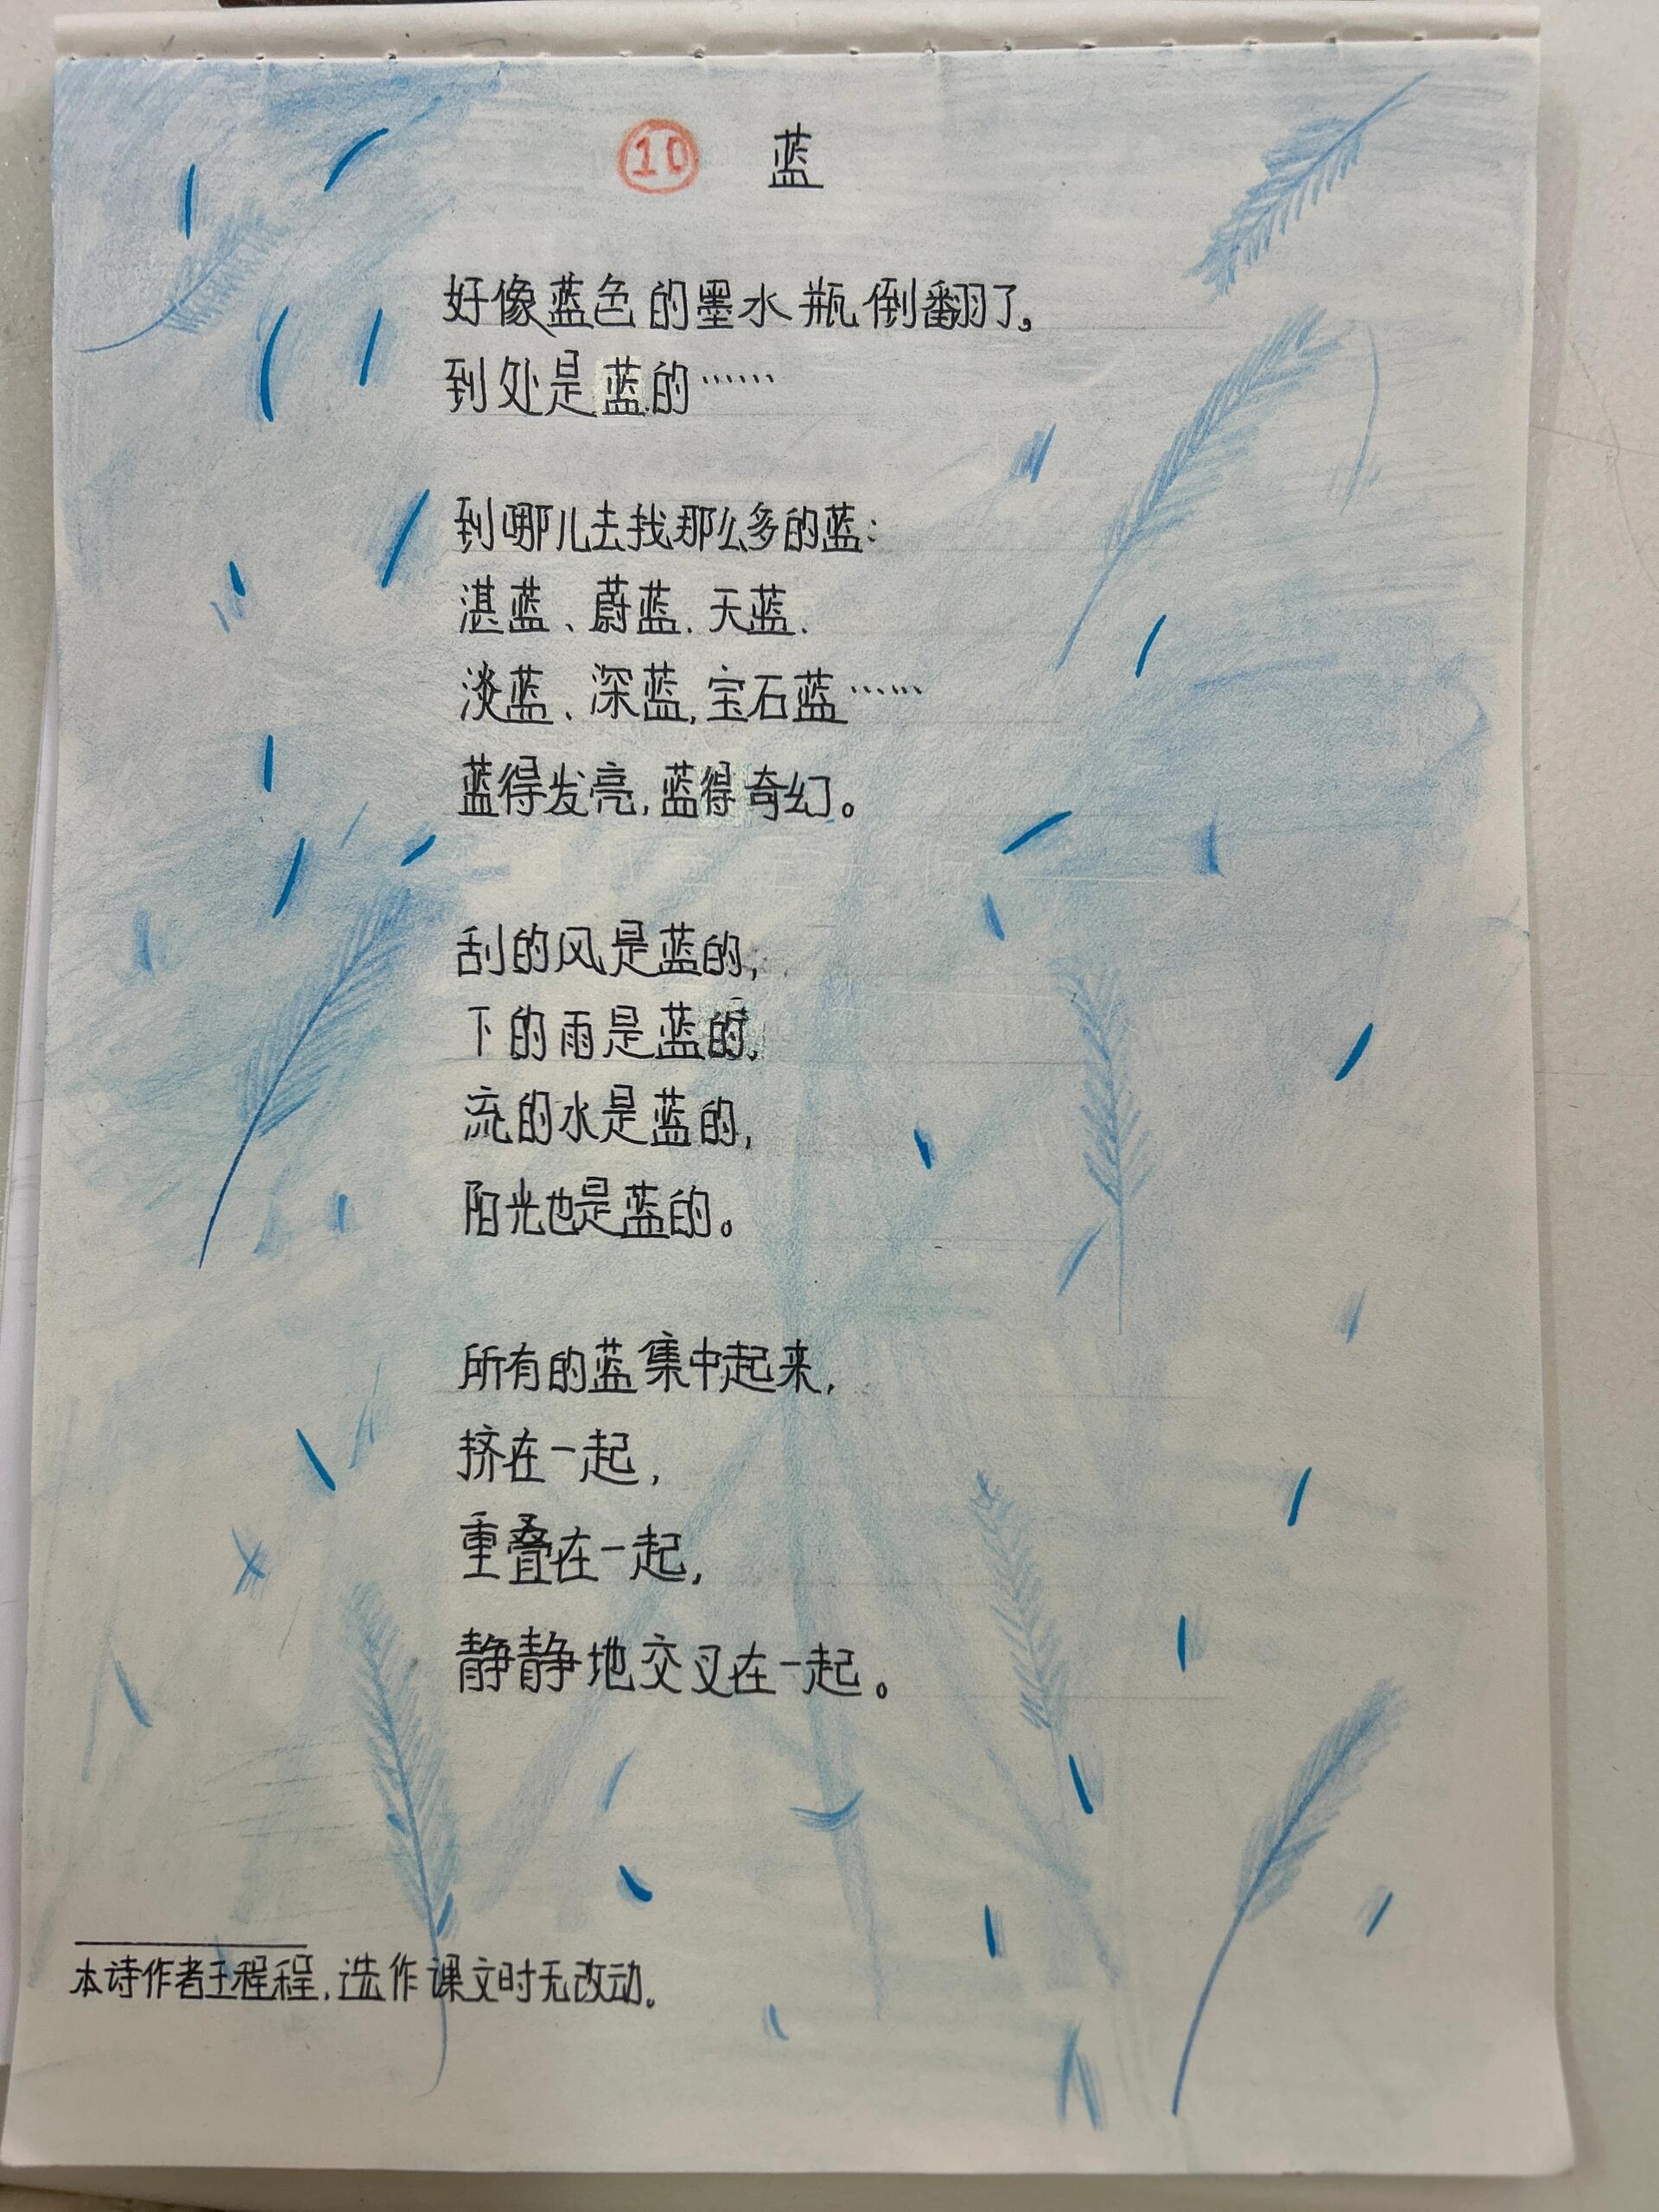 ⑩ 蓝
好像蓝色的墨水瓶倒翻了,
到处是蓝的……
到哪儿去找那么多的蓝:
湛蓝、蔚蓝、天蓝、
淡蓝、深蓝,宝石蓝……
蓝得发亮,蓝得奇幻。
刮的风是蓝的,
下的雨是蓝的,
流的水是蓝的,
阳光也是蓝的。
所有的蓝集中起来,
挤在一起,
重叠在一起,
静静地交叉在一起。
本诗作者王程程,选作课文时无改动。